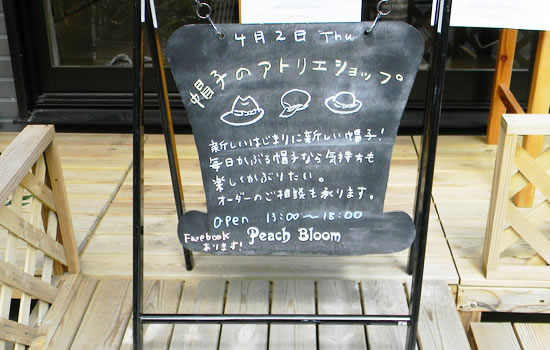 4月2日 Thu
帽子のアトリエショップ
新しいはじまりに新しい帽子!
毎日かぶる帽子なら気持ちも
楽しくかぶりたい。
オーダーのご相談も承ります。
open 13:00〜18:00
Facebook
あります!
Peach Bloom